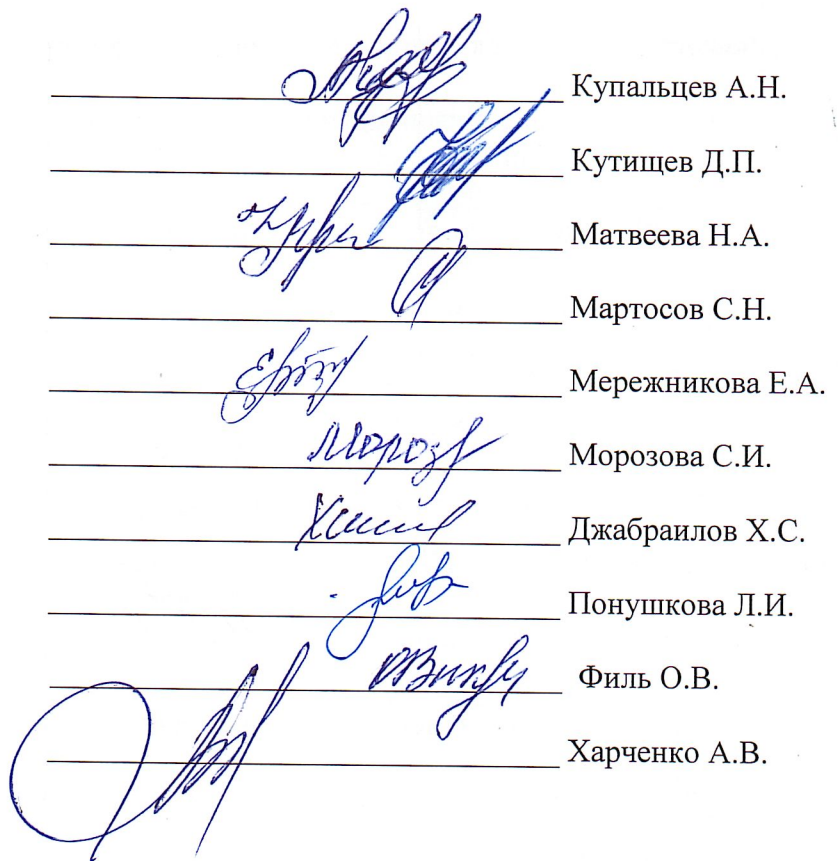 Купальцев А.Н.
Кутищев Д.П.
Матвеева Н.А.
Мартосов С.Н.
Мережникова Е.А.
Морозова С.И.
Джабраилов Х.С.
Понушкова Л.И.
Филь О.В.
Харченко А.В.